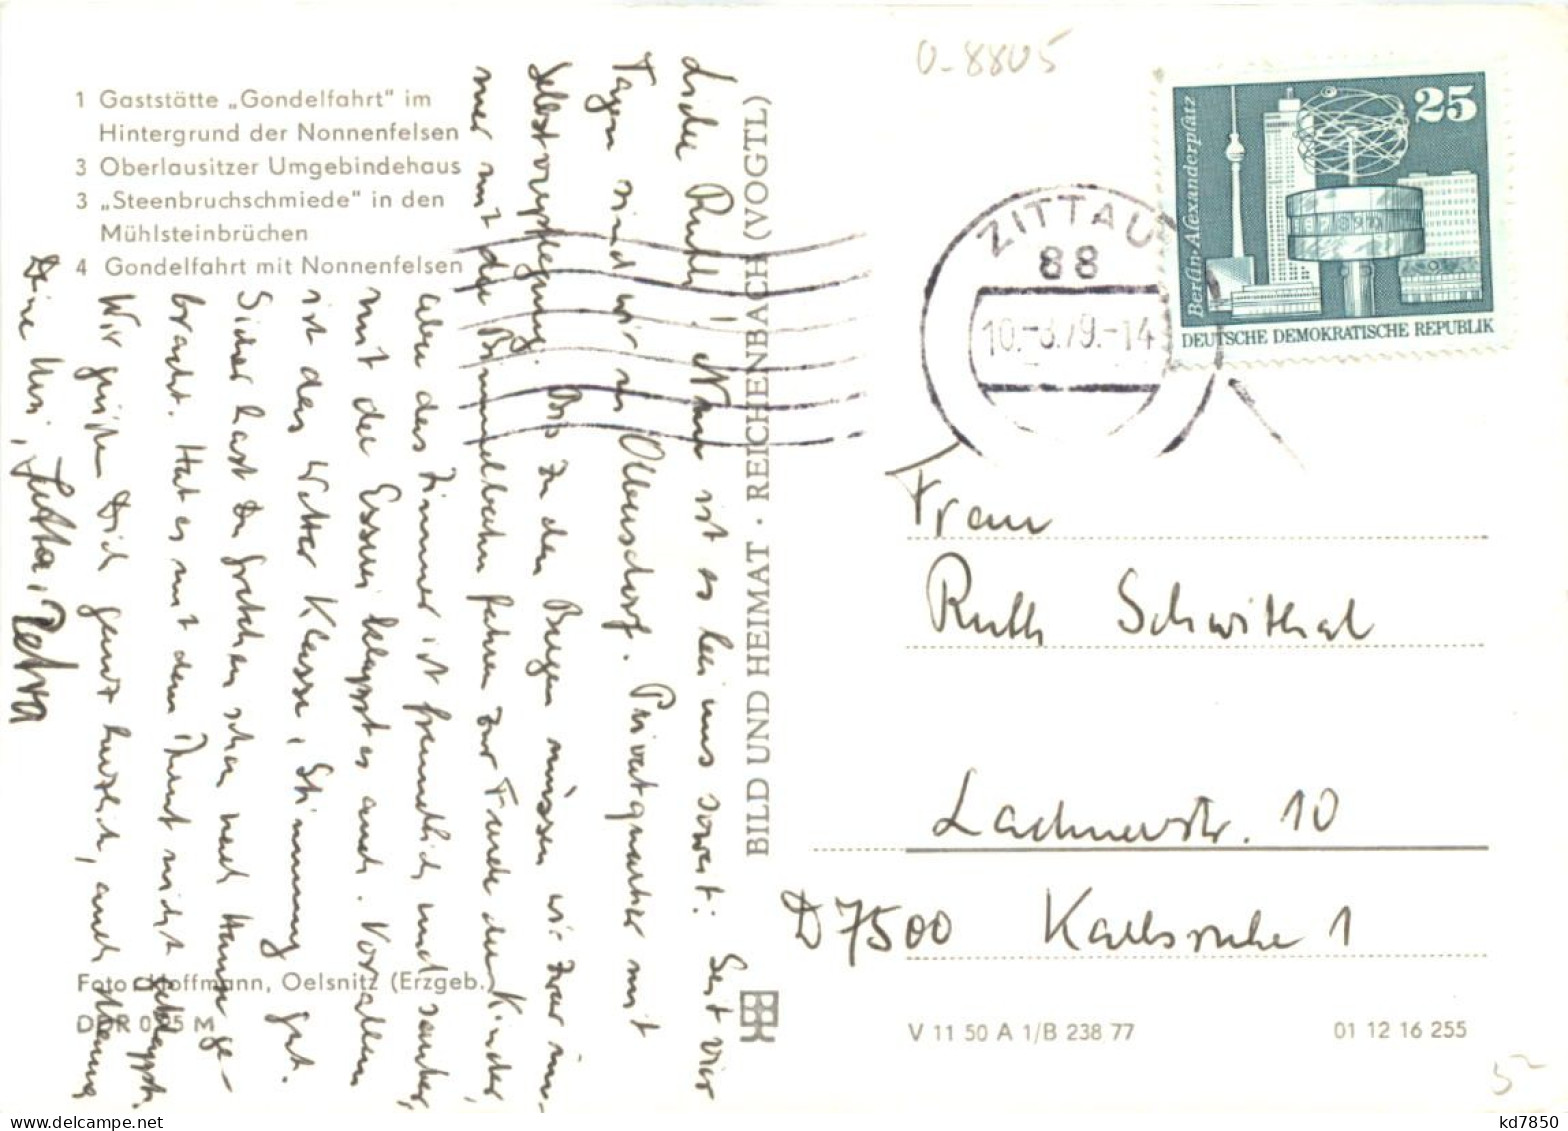 O-8805
1 Gaststätte „Gondelfahrt" im
Hintergrund der Nonnenfelsen
3 Oberlausitzer Umgebindehaus
3 „Steenbruchschmiede" in den
Mühlsteinbrüchen
4 Gondelfahrt mit Nonnenfelsen
Liebe Ruth! Nun ist es bei uns soweit: Seit vier
Tagen sind wir in Olbersdorf. Privatquartier mit
Selbstverpflegung. Bis zu den Bergen müssen wir zwar im-
mer mit der Bimmelbahn fahren zur Freude der Kinder,
aber das Zimmer ist freundlich und sauber,
mit der Esserei klappt es auch. Vor allem
ist das Wetter Klasse, Stimmung gut.
Sicher hast Du Gretchen schon nach Hause ge-
bracht. Hat es mit dem nicht geklappt.
Wir grüßen Dich ganz herzlich, auch
Deine Uri, Jutta, Petra
Foto Hoffmann, Oelsnitz (Erzgeb.)
DDR 0,25 M
BILD UND HEIMAT · REICHENBACH (VOGTL)
ZITTAU
88
10.-3.79.-14
25
Berlin-Alexanderplatz
DEUTSCHE DEMOKRATISCHE REPUBLIK
Frau
Ruth Schwithal
Lachnerstr. 10
D7500 Karlsruhe 1
V 11 50 A 1/B 238 77
01 12 16 255
kd7850